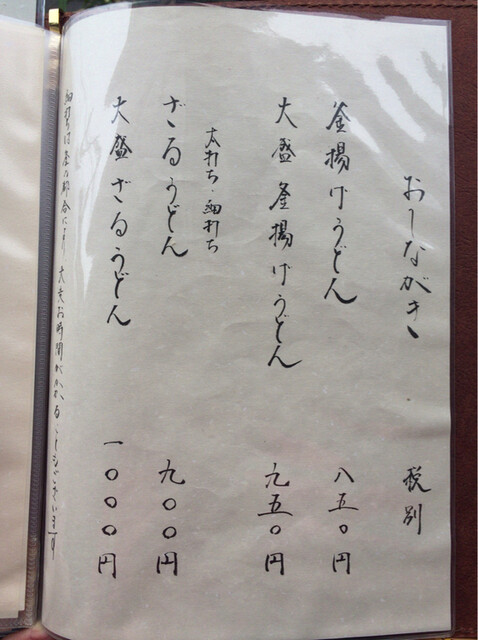 おしながき 税別
釜揚げうどん 八五〇円
大盛釜揚げうどん 九五〇円
太打ち・細打ち
ざるうどん 九〇〇円
大盛ざるうどん 一〇〇〇円
細打ちは釜の都合により 大夫お時間がかかることもございます